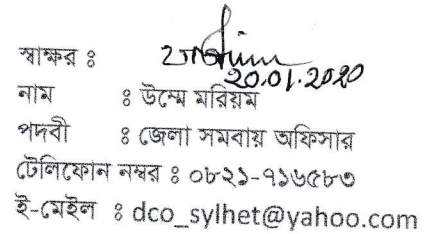 স্বাক্ষর ঃ
20.01.2020
নাম ঃ উম্মে মরিয়ম
পদবী ঃ জেলা সমবায় অফিসার
টেলিফোন নম্বর ঃ ০৮২১-৭১৬৫৮৩
ই-মেইল ঃ dco_sylhet@yahoo.com